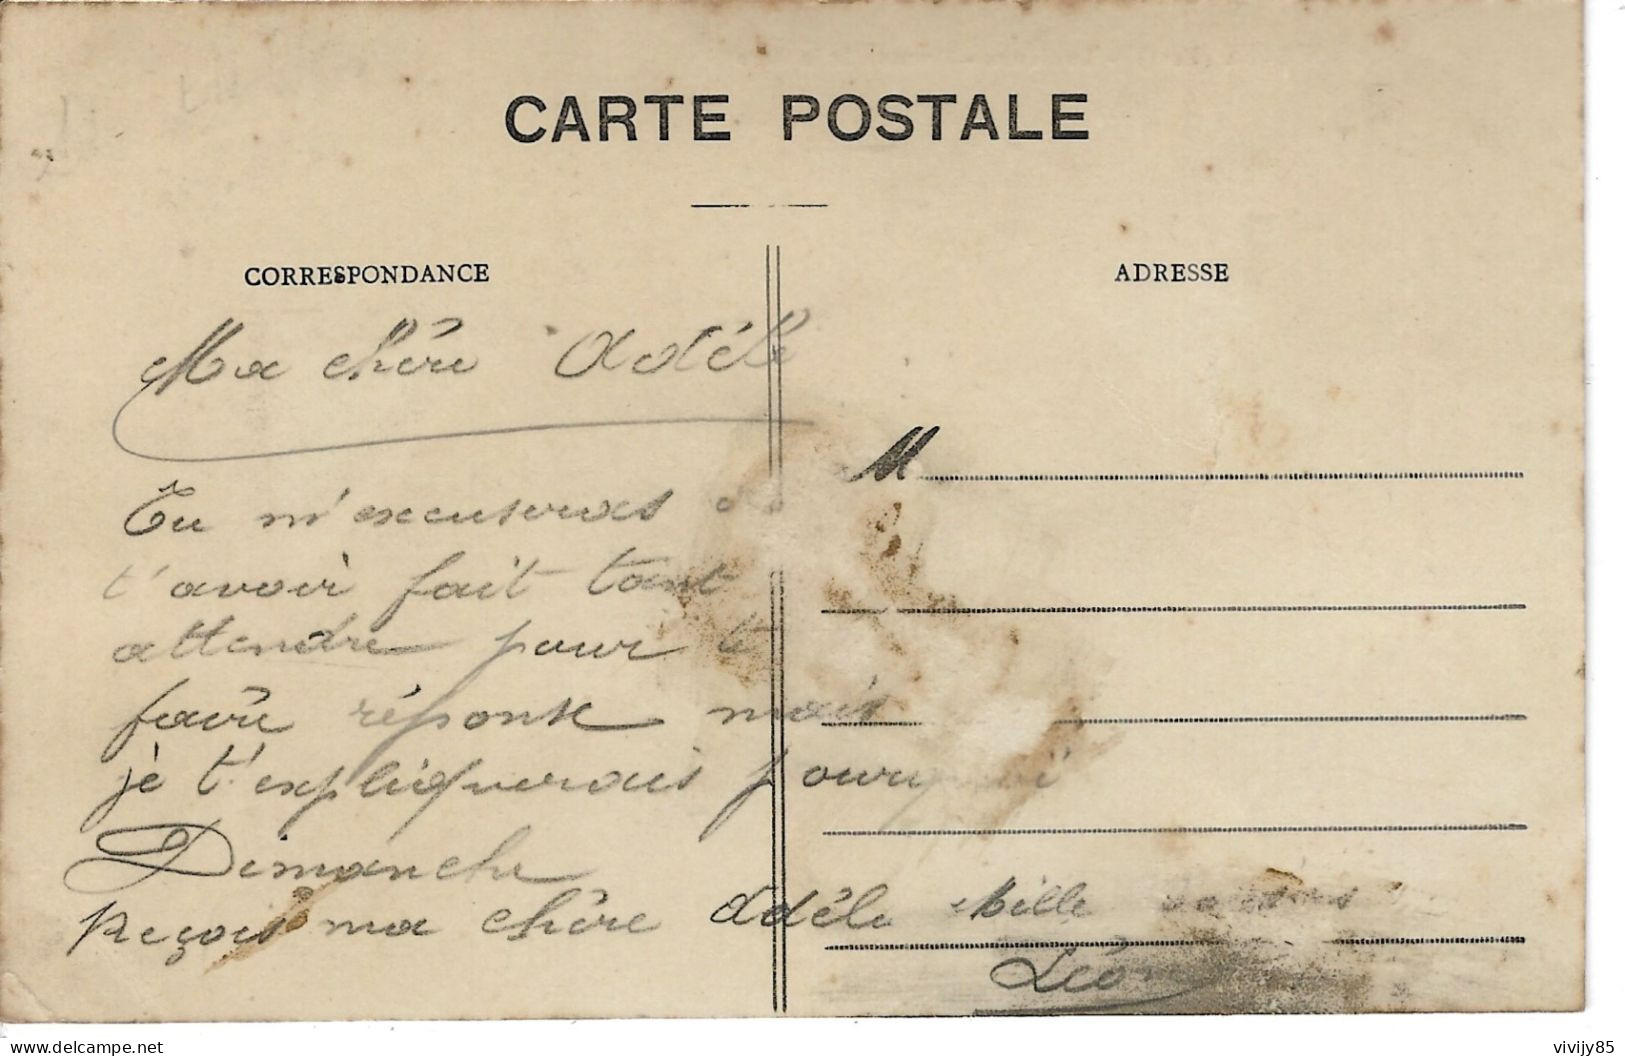 CARTE POSTALE
CORRESPONDANCE
ADRESSE
Ma chère Adèle
M
Tu m'excuseras de
t'avoir fait tant
attendre pour te
faire réponse mais
je t'expliquerais pourquoi
Dimanche
Reçois ma chère Adèle Mille
Léon
delcampe.net
vivijy85